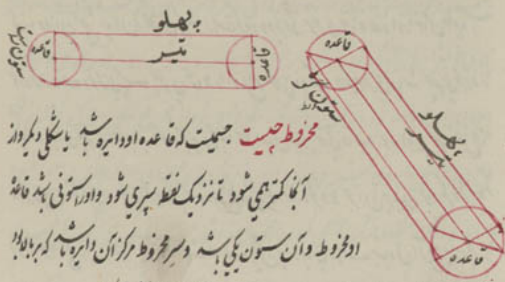 پهلو
قاعده
تیر
قاعده
ستون گرد
قاعده
ستون کژ
پهلو
تیر
قاعده
مخروط چیست جسمیست که قاعده او دایره باشد یا شکلی دیگر و از
آنجا کمتر همی شود تا نزدیک نقطه سپری شود و او را ستونی باشد قاعدهٔ
او مخروطه و آن ستون یکی باشد و سر مخروط مرکز آن دایره باشد که بر بالا بود